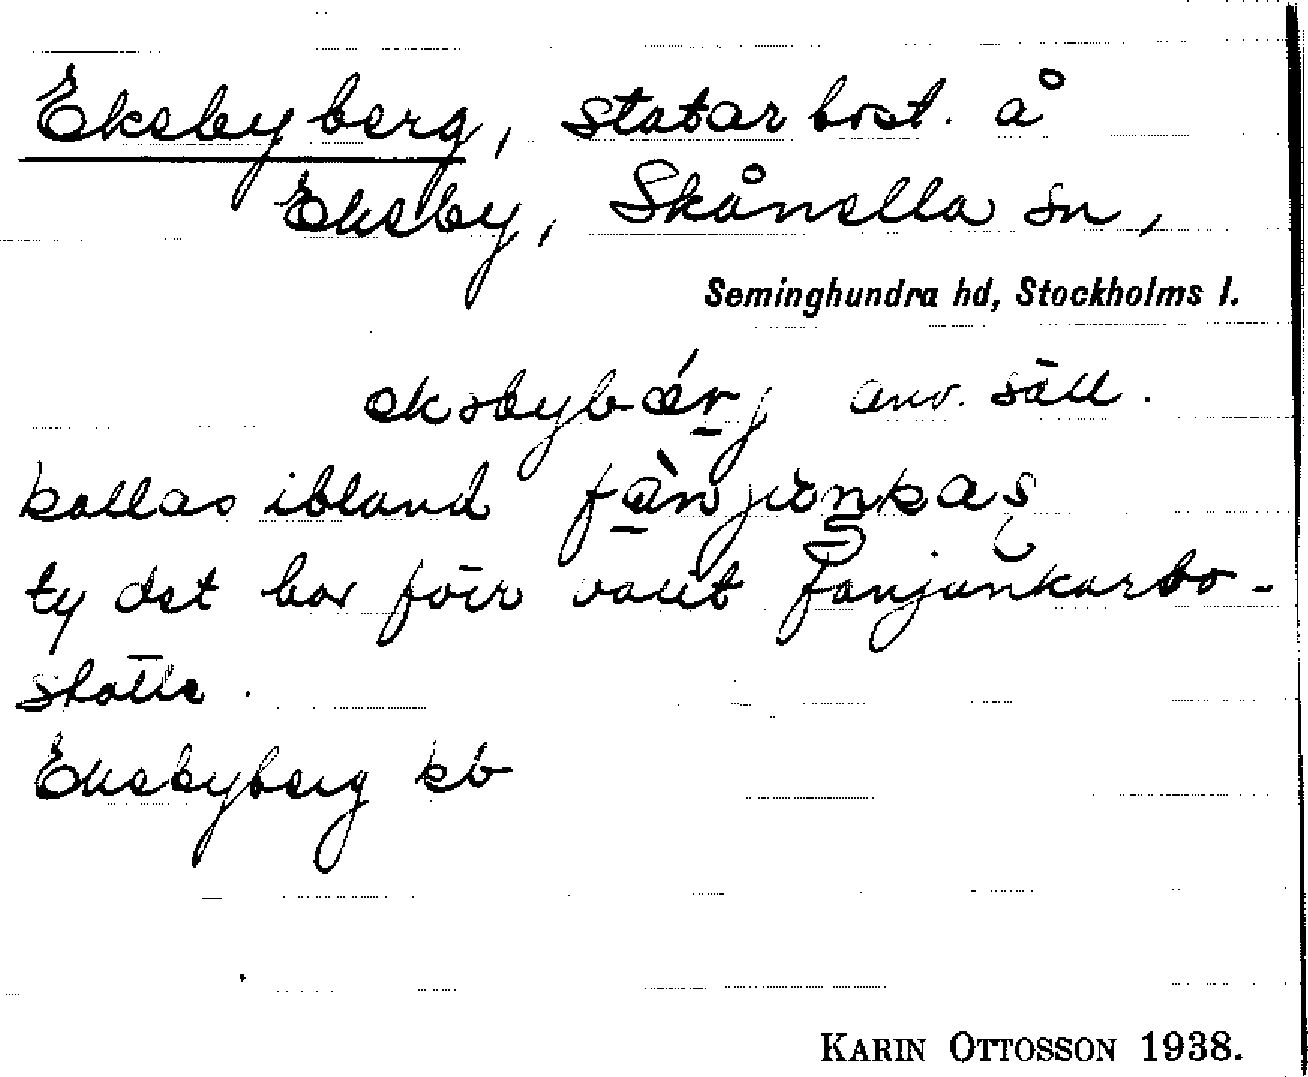 Eksbyberg, statarbost. å
Eksby, Skånella sn,
Seminghundra hd, Stockholms l.
eksbybærj anv. säll.
kallas ibland
ty det har förr varit fanjunkarbo-
ställe.
Eksbyberg kb
KARIN OTTOSSON 1938.